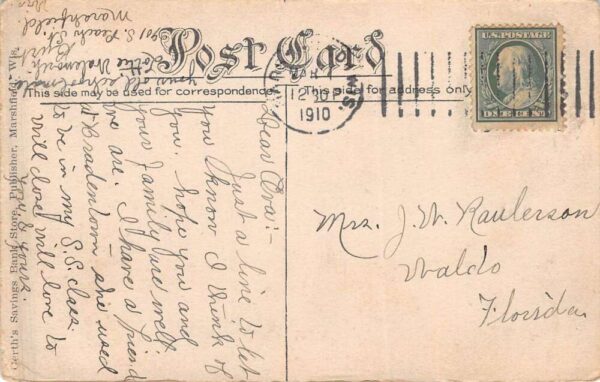 Post Card
This side may be used for correspondence
This side for address only
12 30 P
1910
WIS.
U.S. POSTAGE
ONE CENT
Dear Ora:-
Just a line to let
you know I think of
you. hope you and
your family are well.
we are. I have a friend
at Bradentown she used
to be in my S.S. class.
will close with love to
you & yours.
your old schoolmate
Lottie
401 S. Peach St.
Marshfield
Wis
Mrs. J. W. Raulerson
Waldo
Florida.
Gerth's Savings Bank Store, Publisher, Marshfield, Wis.